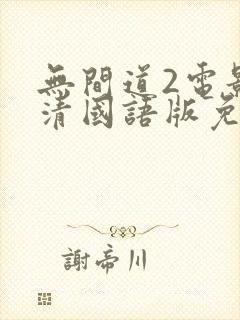 無間道2電影
清國語版免
謝帝川